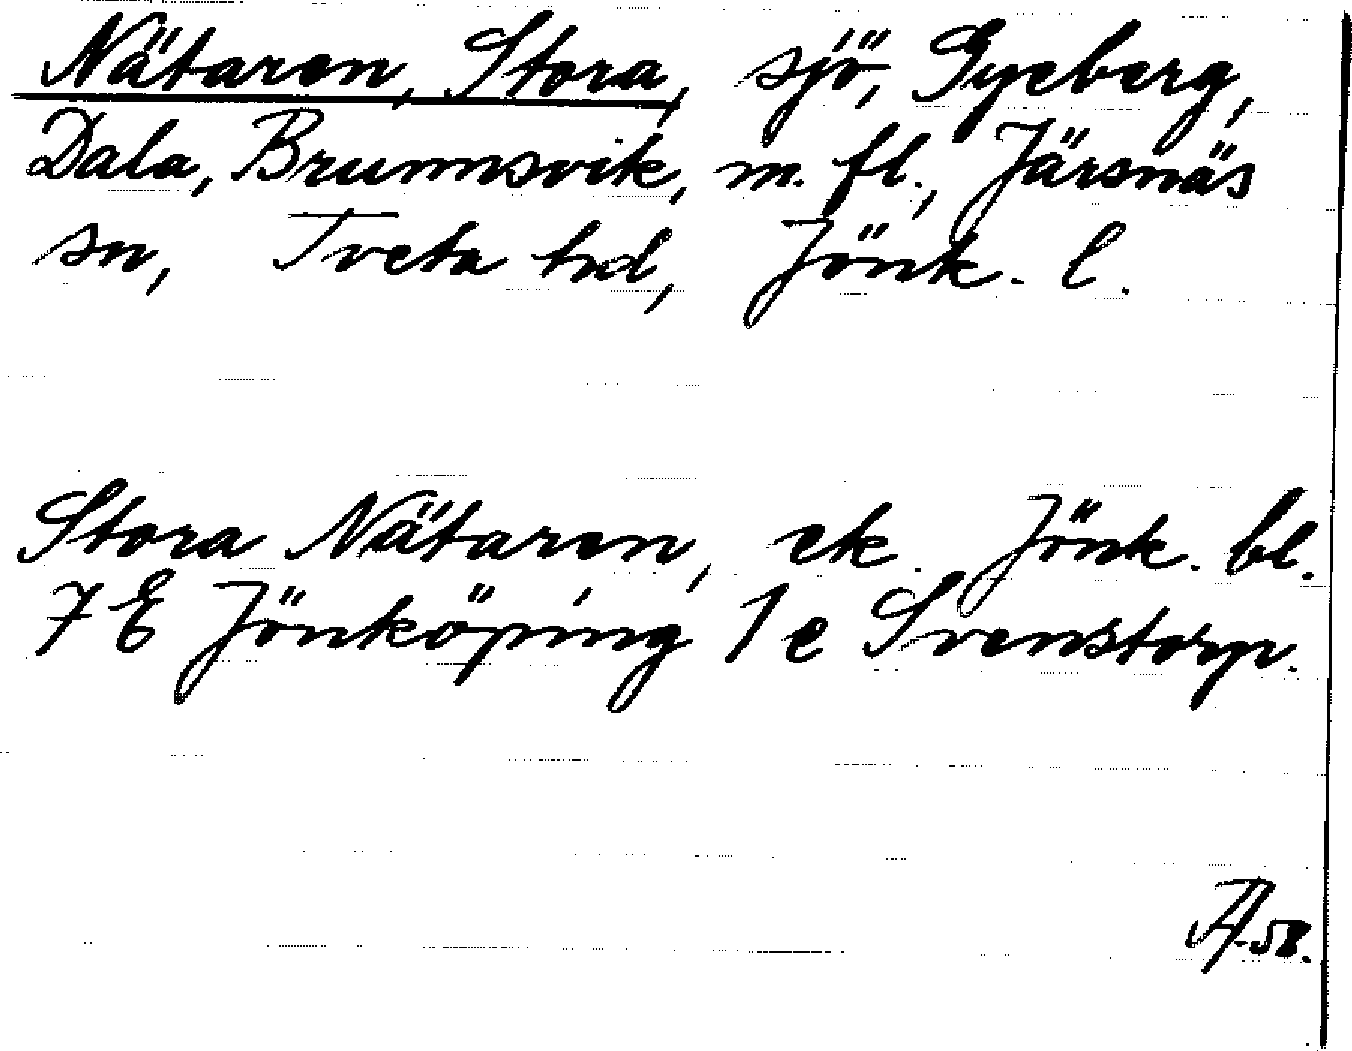 Nätaren, Stora, sjö, Gyeberg,
Dala, Brunnsvik, m. fl., Järsnäs
sn, Tveta hd, Jönk. l.
Stora Nätaren, ek. Jönk. bl.
7 E Jönköping 1 e Svenstorp.